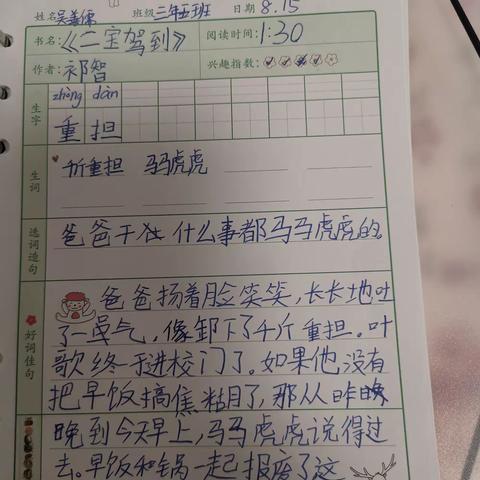 姓名吴善 班级三年五班 日期8.15
书名:《二宝驾到》 阅读时间:1:30
作者:祁智 兴趣指数:
生字 zhòng dàn
重担
生词 千斤重担 马马虎虎
选词造句 爸爸干 什么事都马马虎虎的。
好词佳句 爸爸扬着脸笑笑,长长地吐
了一 气,像卸下了千斤重担。叶
歌终于进校门了。如果他没有
把早饭搞焦粘月了,那从昨晚
晚到今天早上,马马虎虎说得过
去。早饭和锅一起报废了这